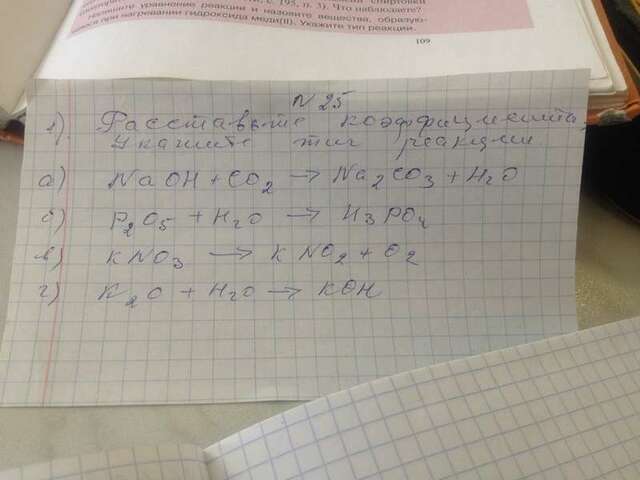 с. 195, п. 3). Что наблюдаете?
уравнение реакции и назовите вещества, образую-
при нагревании гидроксида меди(II). Укажите тип реакции.
109
N 25
1). Расставьте коэффициенты,
Укажите тип реакции
а) NaOH + CO2 → Na2CO3 + H2O
б) P2O5 + H2O → H3PO4
в) KNO3 → KNO2 + O2
г) K2O + H2O → KOH